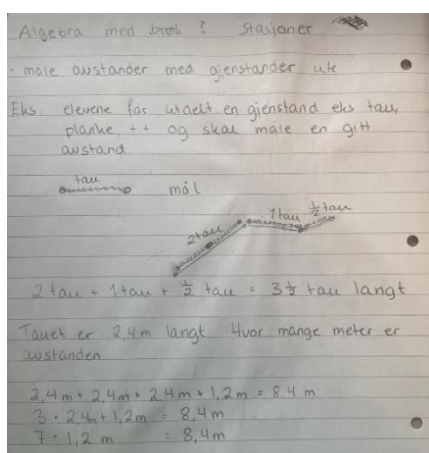 Algebra med brøk ? Stasjoner
- måle avstander med gjenstander ute
Eks elevene får utdelt en gjenstand eks tau,
planke, ++ og skal måle en gitt
avstand.
tau
mål
2 tau
1 tau
½ tau
2 tau + 1 tau + ½ tau = 3½ tau langt
Tauet er 2,4 m langt. Hvor mange meter er
avstanden
2,4m + 2,4m + 2,4m + 1,2m = 8,4 m
3 · 2,4m + 1,2m = 8,4m
7 · 1,2 m = 8,4m